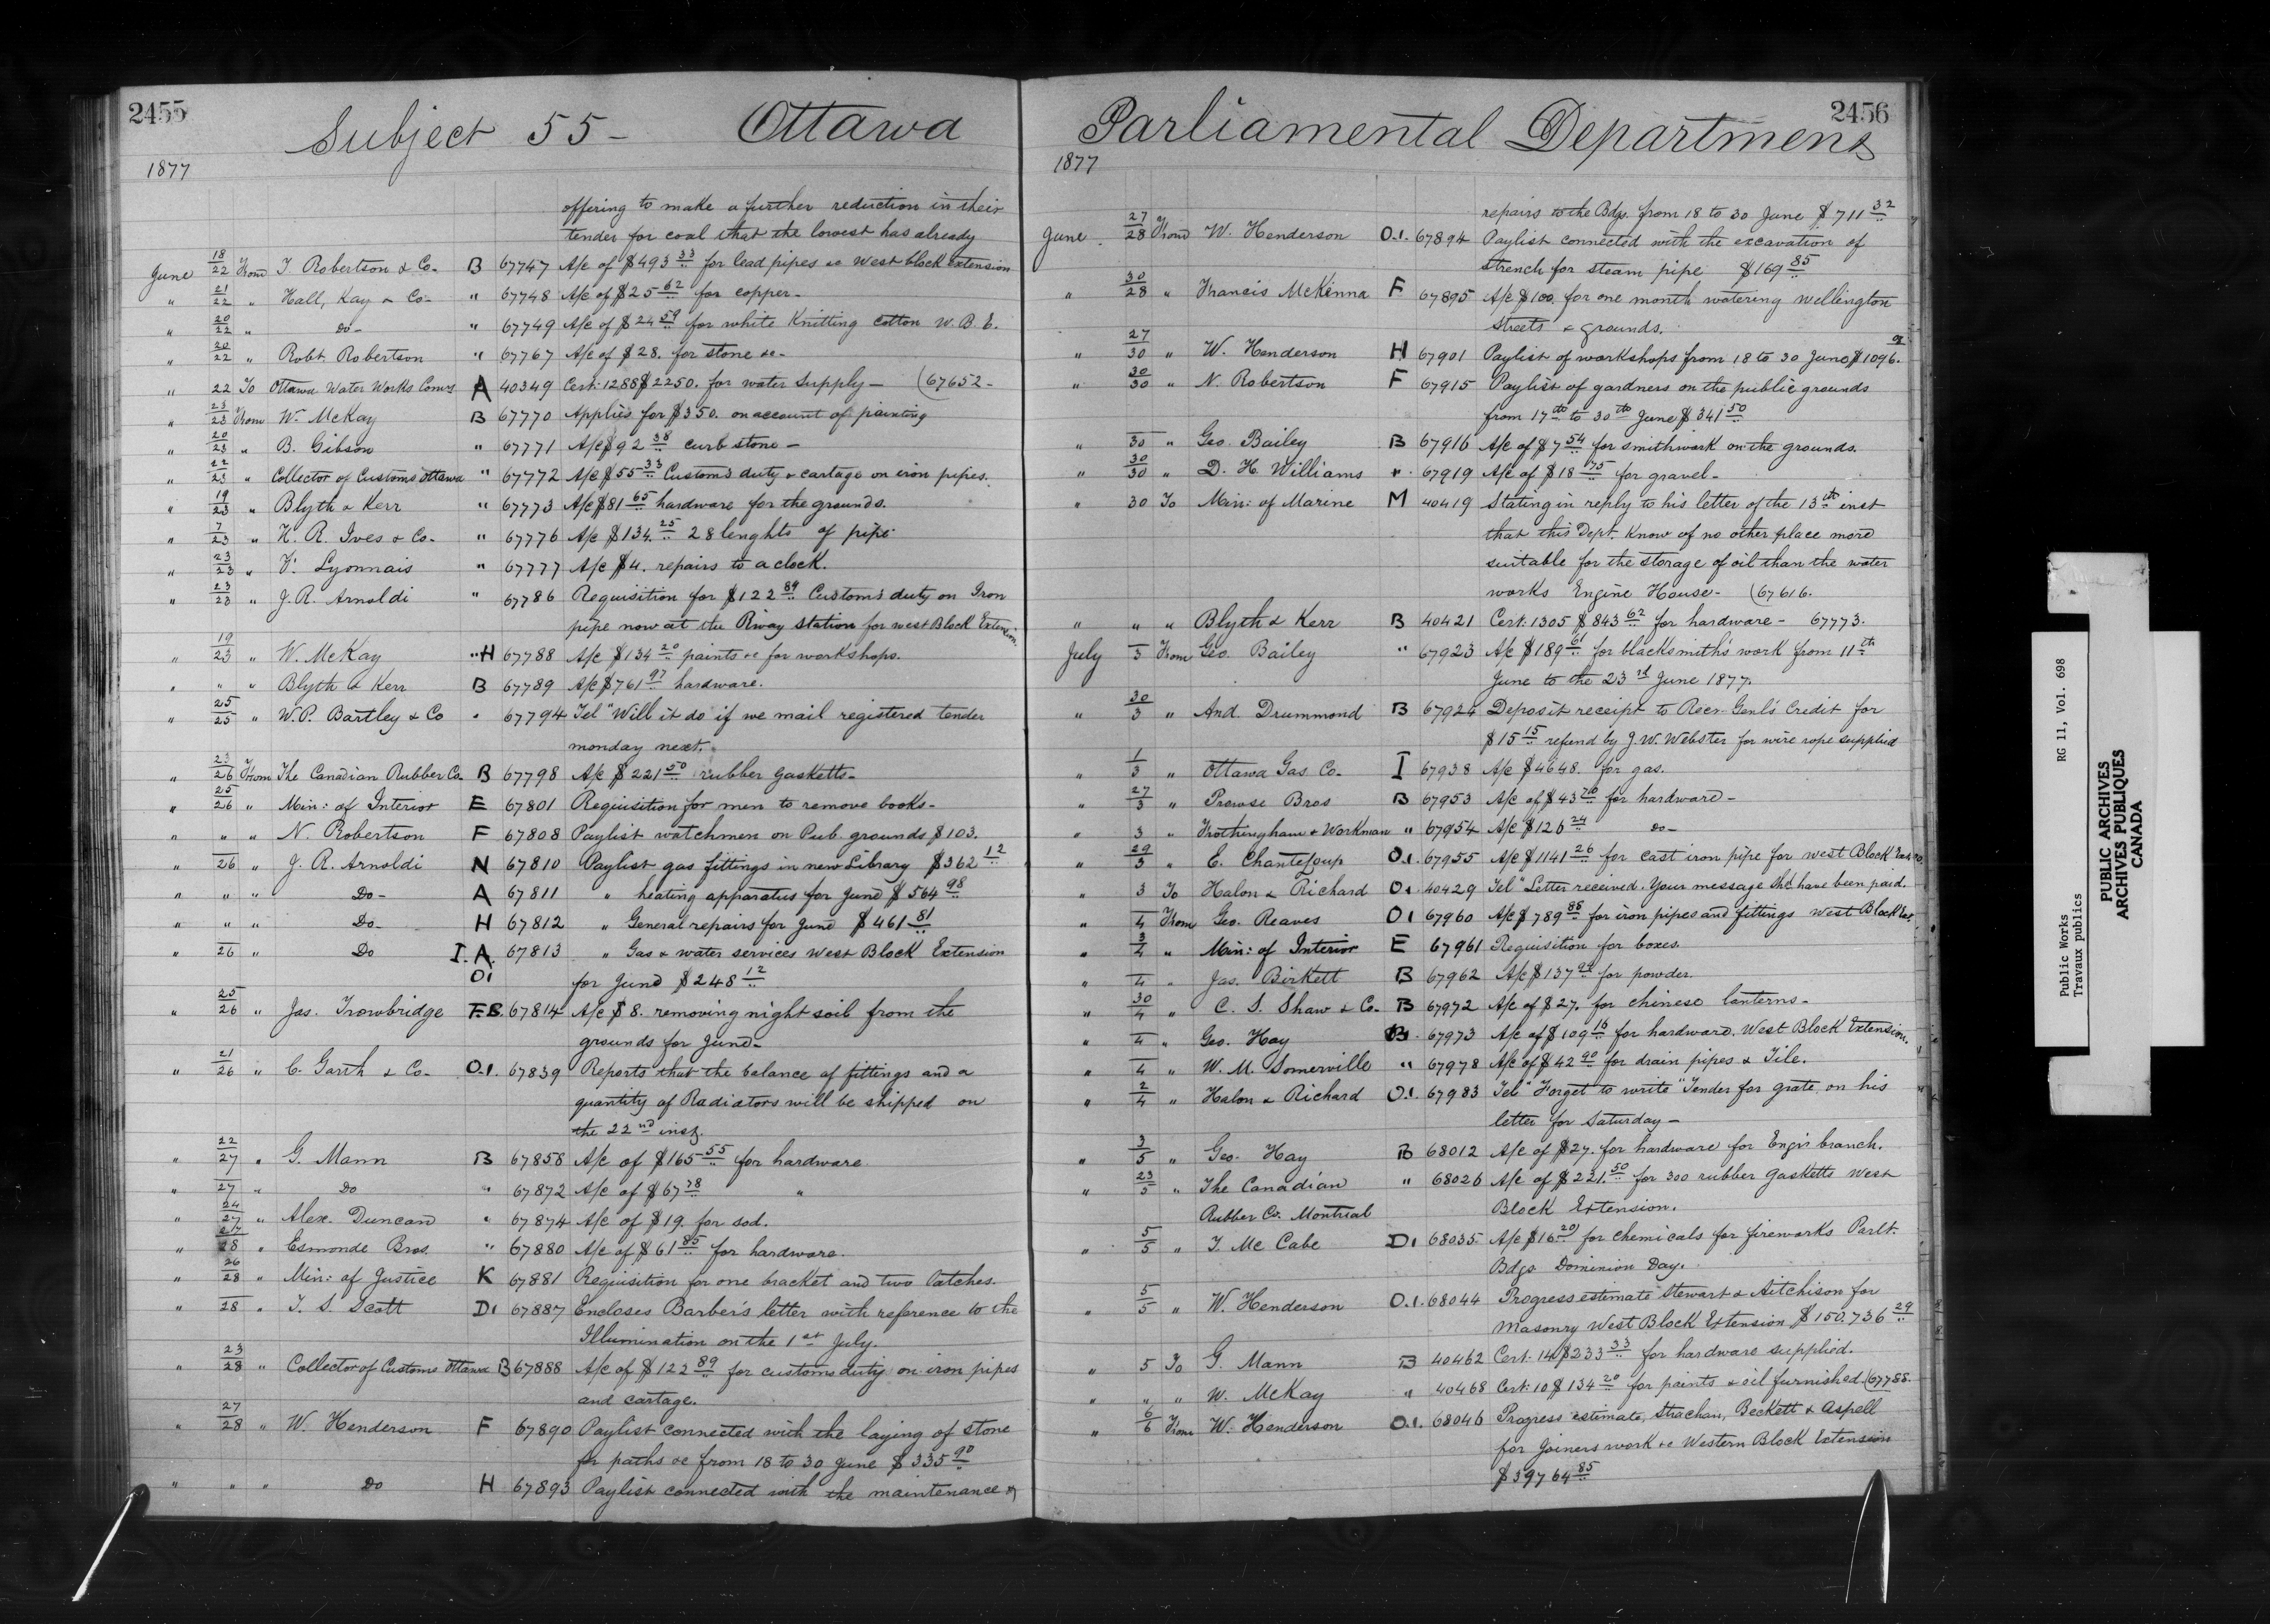 2455
Subject 55 - Ottawa
1877
offering to make a further reduction in their
tender for coal that the lowest has already
June 18/22 From T Robertson & Co- B 67747 A/c of $493 33 for lead pipes &c West block Extension
" 21/22 " Hall, Kay & Co- " 67748 A/c of $25 62 for copper-
" 20/22 " Do- " 67749 A/c of $24 59 for white Knitting Cotton W. B. E.
" 20/22 " Robt. Robertson " 67767 A/c of $28. for stone &c-
" 22 To Ottawa Water Works Comrs A 40349 Cert: 1288 $2250. for water supply- (67652-
" 23/23 From W. McKay B 67770 Applies for $350. on account of painting
" 20/23 " B. Gibson " 67771 A/c $92 38 curb stone-
" 22/23 " Collector of Customs Ottawa " 67772 A/c $55 33 Customs duty & cartage on iron pipes.
" 19/23 " Blyth & Kerr " 67773 A/c $81 65 hardware for the grounds.
" 7/23 " H. R. Ives & Co- " 67776 A/c $134. 25 28 lenghts of pipe
" 23/23 " F. Lyonnais " 67777 A/c $4. repairs to a clock.
" 23/23 " J. R. Arnoldi " 67786 Requisition for $122 89 Customs duty on Iron
pipe now at the Rway station for west Block Extension
" 19/23 " W. McKay " H 67788 A/c $134 20 paints &c for workshops.
" " " Blyth & Kerr B 67789 A/c $761 97 hardware.
" 25/25 " W. P. Bartley & Co " 67794 Tel "Will it do if we mail registered tender
monday next."
" 23/26 From The Canadian Rubber Co. B 67798 A/c $221 50 rubber gasketts-
" 25/26 " Min: of Interior E 67801 Requisition for men to remove books-
" " " N. Robertson F 67808 Paylist watchmen on Pub. grounds $103.
" 26 " J. R. Arnoldi N 67810 Paylist gas fittings in new Library $362 12
" " " Do- A 67811 " heating apparatus for June $564 98
" " " Do- H 67812 " General repairs for June $461 81
" 26 " Do I. A. 67813 " Gas & water services West Block Extension
O1 for June $248 12
" 25/26 " Jas. Trowbridge F.B. 67814 A/c $8. removing night soil from the
grounds for June-
" 21/26 " C. Garth & Co- O.1. 67839 Reports that the balance of fittings and a
quantity of Radiators will be shipped on
the 22nd inst.
" 22/27 " G. Mann B 67858 A/c of $165 55 for hardware.
" 27 " Do " 67872 A/c of $67 78 "
" 24/27 " Alex. Duncan " 67874 A/c of $19. for sod.
" 27/28 " Esmonde Bros. " 67880 A/c of $61 85 for hardware.
" 26/28 " Min: of Justice K 67881 Requisition for one bracket and two latches.
" 28 " T. S. Scott D1 67887 Encloses Barber's letter with reference to the
Illumination on the 1st July.
" 23/28 " Collector of Customs Ottawa B 67888 A/c of $122 89 for customs duty on iron pipes
and cartage.
" 27/28 " W. Henderson F 67890 Paylist connected with the laying of stone
for paths &c from 18 to 30 June $335 90
" " " Do H 67893 Paylist connected with the maintenance &
2456
Parliamental Departments
1877
repairs to the Bdgs. from 18 to 30 June $711 32
June 27/28 From W. Henderson O.1. 67894 Paylist connected with the excavation of
strench for steam pipe $169 85
" 30/28 " Francis McKenna F 67895 A/c $100. for one month watering Wellington
streets & grounds.
" 27/30 " W. Henderson H 67901 Paylist of workshops from 18 to 30 June $1096.
" 30/30 " N. Robertson F 67915 Paylist of gardners on the public grounds
from 17th to 30th June $341 50
" 30 " Geo. Bailey B 67916 A/c of $7 54 for smithwork on the grounds.
" 30/30 " D. H. Williams " 67919 A/c of $18 75 for gravel-
" 30 To Min: of Marine M 40419 Stating in reply to his letter of the 13th inst
that this Dept. know of no other place more
suitable for the storage of oil than the water
works Engine House- (67616.
" " " Blyth & Kerr B 40421 Cert. 1305 $843 62 for hardware- 67773.
July 3 From Geo. Bailey " 67923 A/c $189 61 for blacksmith's work from 11th
June to the 23rd June 1877.
" 30/3 " And. Drummond B 67924 Deposit receipt to Recr. Genl's Credit for
$15 15 refund by J. W. Webster for wire rope supplied
" 1/3 " Ottawa Gas Co- I 67938 A/c $4648. for gas.
" 27/3 " Prowse Bros B 67953 A/c of $43 70 for hardware-
" 3 " Frothingham & Workman " 67954 A/c $126 24 Do-
" 29/3 " E. Chanteloup O.1. 67955 A/c $1141 26 for cast iron pipe for west Block
" 3 To Halon & Richard O1 40429 Tel "Letter received. Your message shd have been paid.
" 4 From Geo. Reaves O1 67960 A/c $789 88 for iron pipes and fittings West Block Ext.
" 3/4 " Min: of Interior E 67961 Requisition for boxes.
" 4 " Jas. Birkett B 67962 A/c $137 99 for powder.
" 30/4 " C. S. Shaw & Co- B 67972 A/c of $27. for chinese lanterns-
" 4 " Geo. Hay B. 67973 A/c of $109 16 for hardware. West Block Extension.
" 4 " W. M. Somerville " 67978 A/c of $42 90 for drain pipes & Tile.
" 2/4 " Halon & Richard O.1. 67983 Tel "Forget to write "Tender for grate on his
letter for Saturday-
" 3/5 " Geo. Hay B 68012 A/c of $27. for hardware for Engr's branch.
" 23/5 " The Canadian " 68026 A/c of $221. 50 for 300 rubber gasketts West
Rubber Co. Montreal Block Extension.
" 5/5 " T. Mc Cabe D1 68035. A/c $16 20 for chemicals for fireworks Parlt.
Bdgs Dominion Day.
" 5/5 " W. Henderson O.1. 68044 Progress estimate Stewart & Aitchison for
Masonry West Block Extension $150.736 29
" 5 To G. Mann B 40462 Cert: 14 $233 33 for hardware supplied.
" " " W. McKay " 40468 Cert: 10 $134 20 for paints & oil furnished (67788.
" 6/6 From W. Henderson O.1. 68046 Progress estimate, Strachan, Beckett & Aspell
for Joiners work &c Western Block Extension
$39764 85
Public Works RG 11, Vol. 698
Travaux publics
PUBLIC ARCHIVES
ARCHIVES PUBLIQUES
CANADA